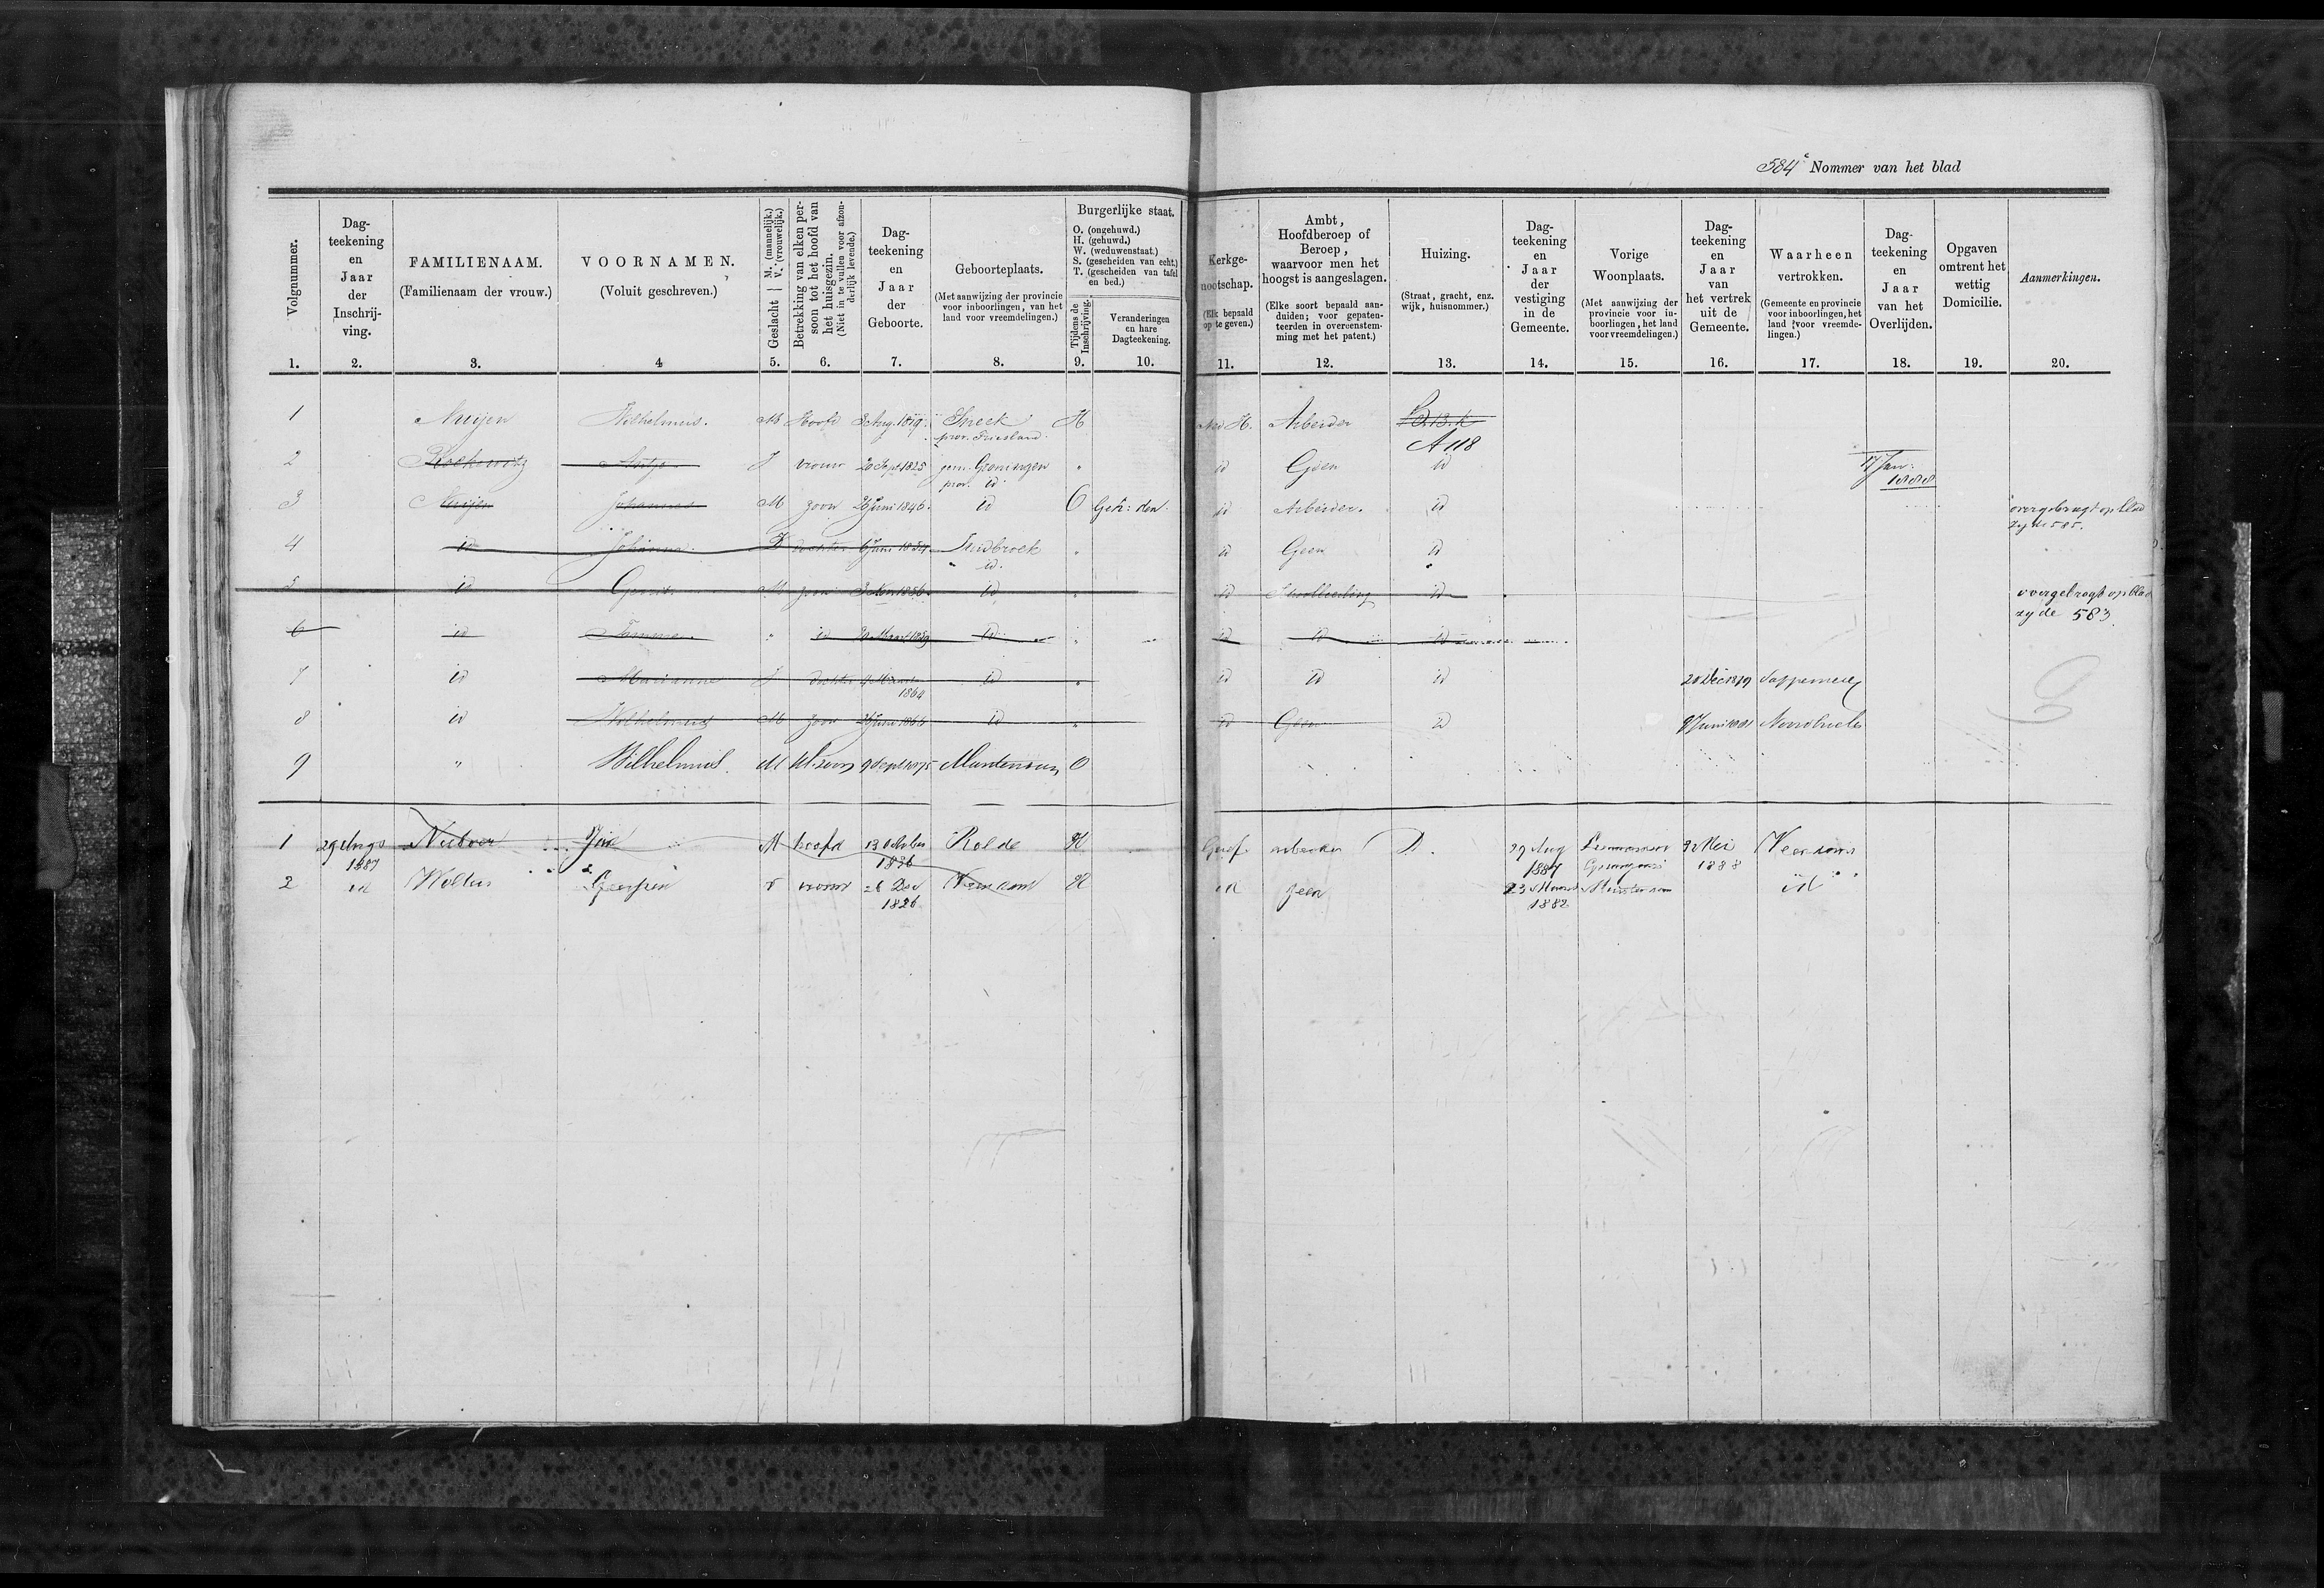 584e Nommer van het blad
Volgnummer.
Dag-
teekening
en
Jaar
der
Inschrij-
ving.
FAMILIENAAM.
(Familienaam der vrouw.)
VOORNAMEN.
(Voluit geschreven.)
Geslacht M. (mannelijk.)
V. (vrouwelijk.)
Betrekking van elken per-
soon tot het hoofd van
het huisgezin.
(Niet in te vullen voor afzon-
derlijk levende.)
Dag-
teekening
en
Jaar
der
Geboorte.
Geboorteplaats.
(Met aanwijzing der provincie
voor inboorlingen, van het
land voor vreemdelingen.)
Burgerlijke staat.
O. (ongehuwd.)
H. (gehuwd.)
W. (weduwenstaat.)
S. (gescheiden van echt.)
T. (gescheiden van tafel
en bed.)
Tijdens de
Inschrijving.
Veranderingen
en hare
Dagteekening.
Kerkge-
nootschap.
(Elk bepaald
op te geven.)
Ambt,
Hoofdberoep of
Beroep,
waarvoor men het
hoogst is aangeslagen.
(Elke soort bepaald aan-
duiden; voor gepaten-
teerden in overeenstem-
ming met het patent.)
Huizing.
(Straat, gracht, enz.
wijk, huisnommer.)
Dag-
teekening
en
Jaar
der
vestiging
in de
Gemeente.
Vorige
Woonplaats.
(Met aanwijzing der
provincie voor in-
boorlingen, het land
voor vreemdelingen.)
Dag-
teekening
en
Jaar
van
het vertrek
uit de
Gemeente.
Waarheen
vertrokken.
(Gemeente en provincie
voor inboorlingen, het
land voor vreemde-
lingen.)
Dag-
teekening
en
Jaar
van het
Overlijden.
Opgaven
omtrent het
wettig
Domicilie.
Aanmerkingen.
1. 2. 3. 4 5. 6. 7. 8. 9. 10. 11. 12. 13. 14. 15. 16. 17. 18. 19. 20.
1 Muijen Wilhelmus. M Hoofd 3 Aug. 1819. Sneek H Ned H. Arbeider
prov. Friesland.
A 118
2 Antje V vrouw 20 Sept 1825 gem. Groningen " id Geen id 17 Jan:
prov. id. 1888
3 Muijen Johannes M zoon 26 Juni 1846. id O Geh: den id Arbeider. id overgebragt op blad
zijde 585.
4 id Johanna. V dochter 6 Juni 1854. " id Geen id
" id.
5 id M zoon 1856. id " id id overgebragt op blad
zijde 583.
6 id " id Maart 1859 id " id id id
7 id Marianne V dochter Maart id " id id id 20 Dec 1879 Sappemeer
1864
8 id Wilhelmus M zoon 26 Juni 1866 id " id Geen id Juni 1881 Noordbroek
9 " Wilhelmus. M Kl. zoon 9 Sept 1875 Muntendam O
1 29 Augs M hoofd 13 October Rolde H Geref. arbeider D. 29 Aug Mei Veendam
1887 1836 1887 1888
2 id Wolters V vrouw 26 Dec Veendam H id geen 23 Maart Muntendam id
1826 1882